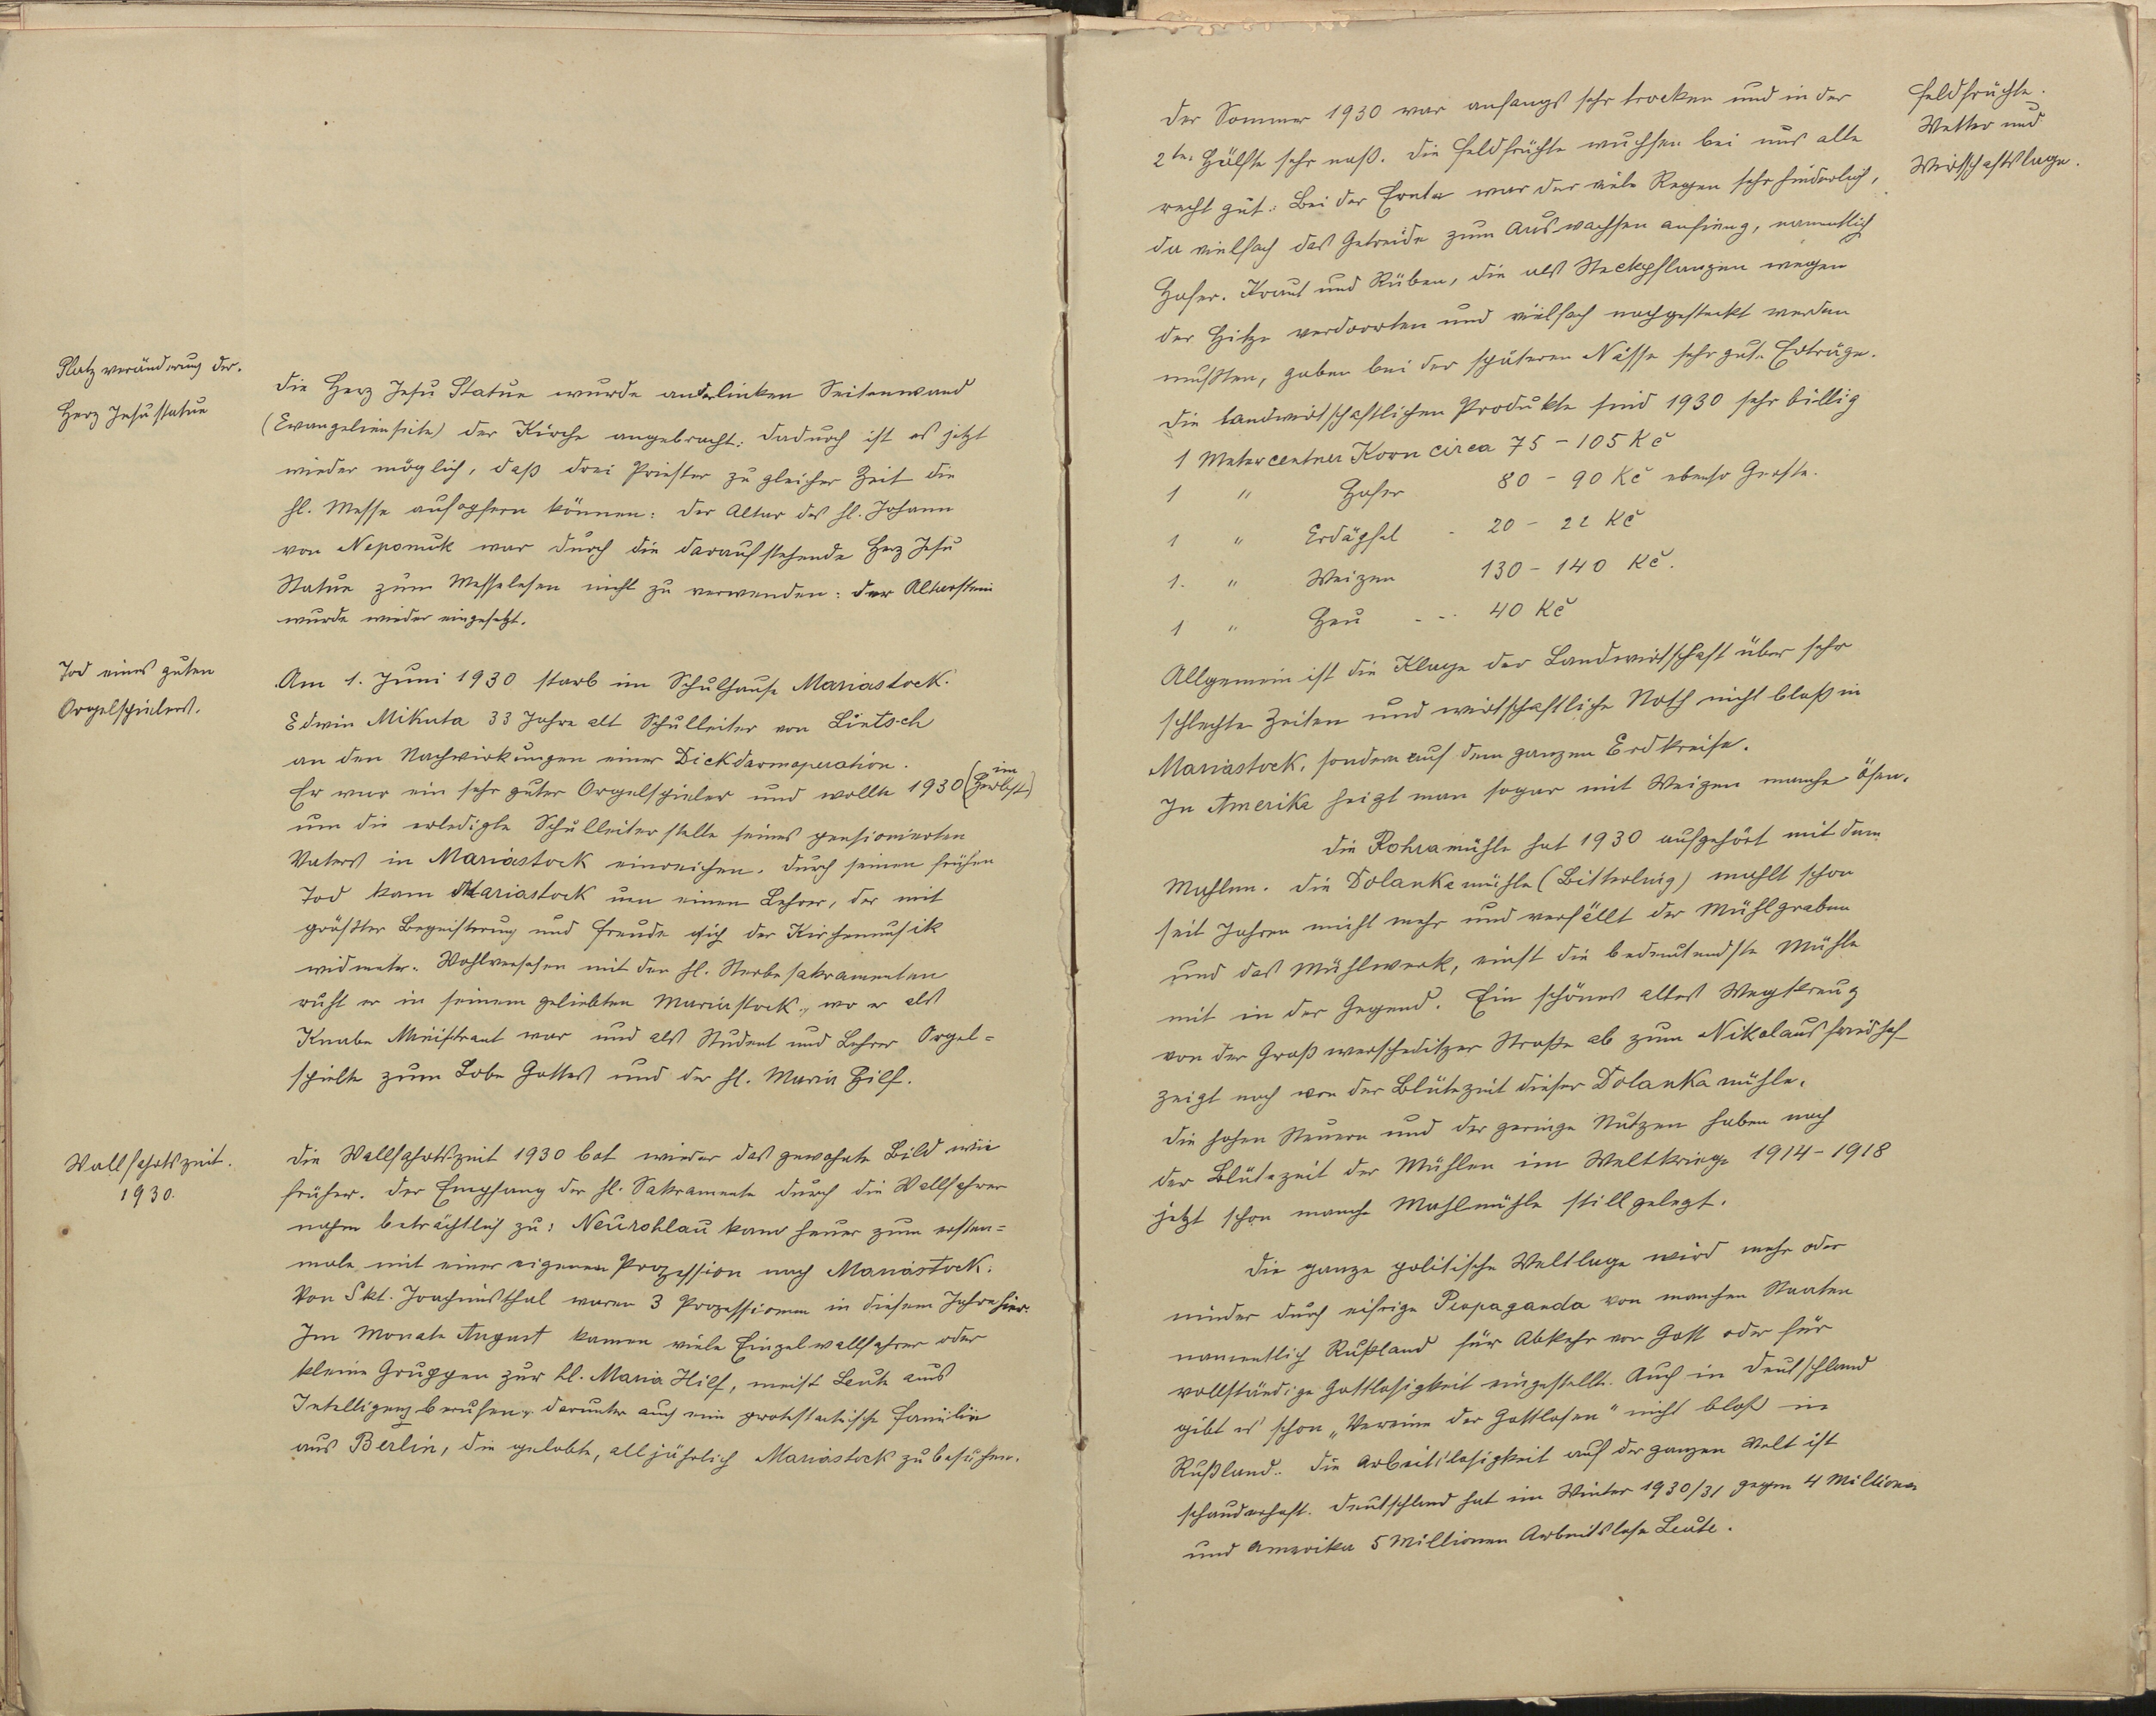 Platzveränderung der.
Herz Jesustatue
Die Herz Jesu Statue wurde an der linken Seitenwand
(Evangelienseite) der Kirche angebracht: dadurch ist es jetzt
wieder möglich, daß drei Priester zu gleicher Zeit die
hl. Messe aufopfern können: der Altar des hl. Johann
von Nepomuk war durch die daraufstehende Herz Jesu
Statue zum Messelesen nicht zu verwenden: der Altarstein
wurde wieder eingesetzt.
Tod eines guten
Orgelspielers.
Am 1. Juni 1930 starb im Schulhause Mariastock.
Edwin Mikuta 33 Jahre alt Schulleiter von Lintsch
an den Nachwirkungen einer Dickdarmoperation.
Er war ein sehr guter Orgelspieler und wollte 1930 (im Herbst)
um die erledigte Schulleiterstelle seines pensionierten
Vaters in Mariastock einreichen. Durch seinen frühen
Tod kam Mariastock um einen Lehrer, der mit
größter Begeisterung und Freude sich der Kirchenmusik
widmete. Wohlversehen mit den hl. Sterbesakramenten
ruht er in seinem geliebten Mariastock, wo er als
Knabe Ministrant war und als Student und Lehrer Orgel=
spielte zum Lobe Gottes und der hl. Maria Hilf.
Wallfahrtszeit.
1930.
Die Wallfahrtszeit 1930 bot wieder das gewohnte Bild wie
früher. Der Empfang der hl. Sakramente durch die Wallfahrer
nahm beträchtlich zu: Neurohlau kam heuer zum ersten=
male mit einer eigenen Prozession nach Mariastock.
Von Skt. Joachimsthal waren 3 Prozessionen in diesem Jahre hier.
Im Monate August kamen viele Einzelwallfahrer oder
kleine Gruppen zur hl. Maria Hilf, meist Leute aus
Intelligenzberufen, darunter auch eine protestantische Familie
aus Berlin, die gelobte, alljährlich Mariastock zu besuchen.
Feldfrüchte.
Wetter und
Wirtschaftslage.
Der Sommer 1930 war anfangs sehr trocken und in der
2ten Hälfte sehr naß. Die Feldfrüchte wuchsen bei uns alle
recht gut: Bei der Ernte war der viele Regen sehr hinderlich,
da vielfach das Getreide zum Auswachsen anfieng, namentlich
Hafer. Kraut und Rüben, die als Steckpflanzen wegen
der Hitze verdorrten und vielfach nachgesteckt werden
mußten, gaben bei der späteren Nässe sehr gute Erträge.
Die landwirtschaftlichen Produkte sind 1930 sehr billig
1 Metercentner Korn circa 75 - 105 Kč
1 " Hafer 80 - 90 Kč ebenso Gerste.
1 " Erdäpfel - 20 - 22 Kč
1. " Weizen 130 - 140 Kč.
1 " Heu - - - 40 Kč
Allgemein ist die Klage der Landwirtschaft über sehr
schlechte Zeiten und wirtschaftliche Noth nicht bloß in
Mariastock, sondern auf dem ganzen Erdkreise.
In Amerika heizt man sogar mit Weizen manche Öfen.
Die Rohramühle hat 1930 aufgehört mit dem
Mahlen. Die Dolankamühle (Bitterling) mahlt schon
seit Jahren nicht mehr und verfällt der Mühlgraben
und das Mühlwerk, einst die bedeutendste Mühle
mit in der Gegend. Ein schönes altes Wegkreuz
von der Großwerscheditzer Straße ab zum Nikolausfriedhof
zeigt noch von der Blütezeit dieser Dolankamühle.
Die hohen Steuern und der geringe Nutzen haben nach
der Blütezeit der Mühlen im Weltkriege 1914 - 1918
jetzt schon manche Mahlmühle stillgelegt.
Die ganze politische Weltlage wird mehr oder
minder durch eifrige Propaganda von manchen Staaten
namentlich Rußland für Abkehr von Gott oder für
vollständige Gottlosigkeit eingestellt. Auch in Deutschland
gibt es schon „Vereine der Gottlosen" nicht bloß in
Rußland. Die Arbeitslosigkeit auf der ganzen Welt ist
schauderhaft. Deutschland hat im Winter 1930/31 gegen 4 Millionen
und Amerika 5 Millionen Arbeitslose Leute.